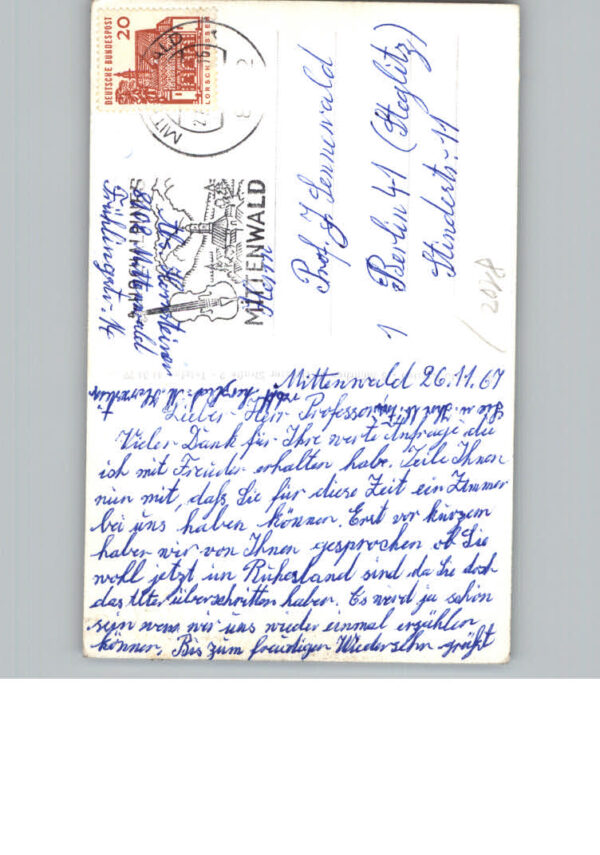 DEUTSCHE BUNDESPOST
20
LORSCH HESSEN
MITTENWALD
Prof. J. Sennewald
1 Berlin 41 (Steglitz)
Stinderstr. 11
2028
8102 Mittenwald
Frühlingstr. 14
Mittenwald 26.11.67
Lieber Herr Professor
Vielen Dank für Ihre werte Anfrage die
ich mit Freuden erhalten habe. Teile Ihnen
nun mit, daß Sie für diese Zeit ein Zimmer
bei uns haben können. Erst vor kurzem
haben wir von Ihnen gesprochen ob Sie
wohl jetzt im Ruhestand sind da Sie doch
das Alter überschritten haben. Es wird ja schön
sein wenn wir uns wieder einmal erzählen
können. Bis zum freudigen Wiedersehn grüßt